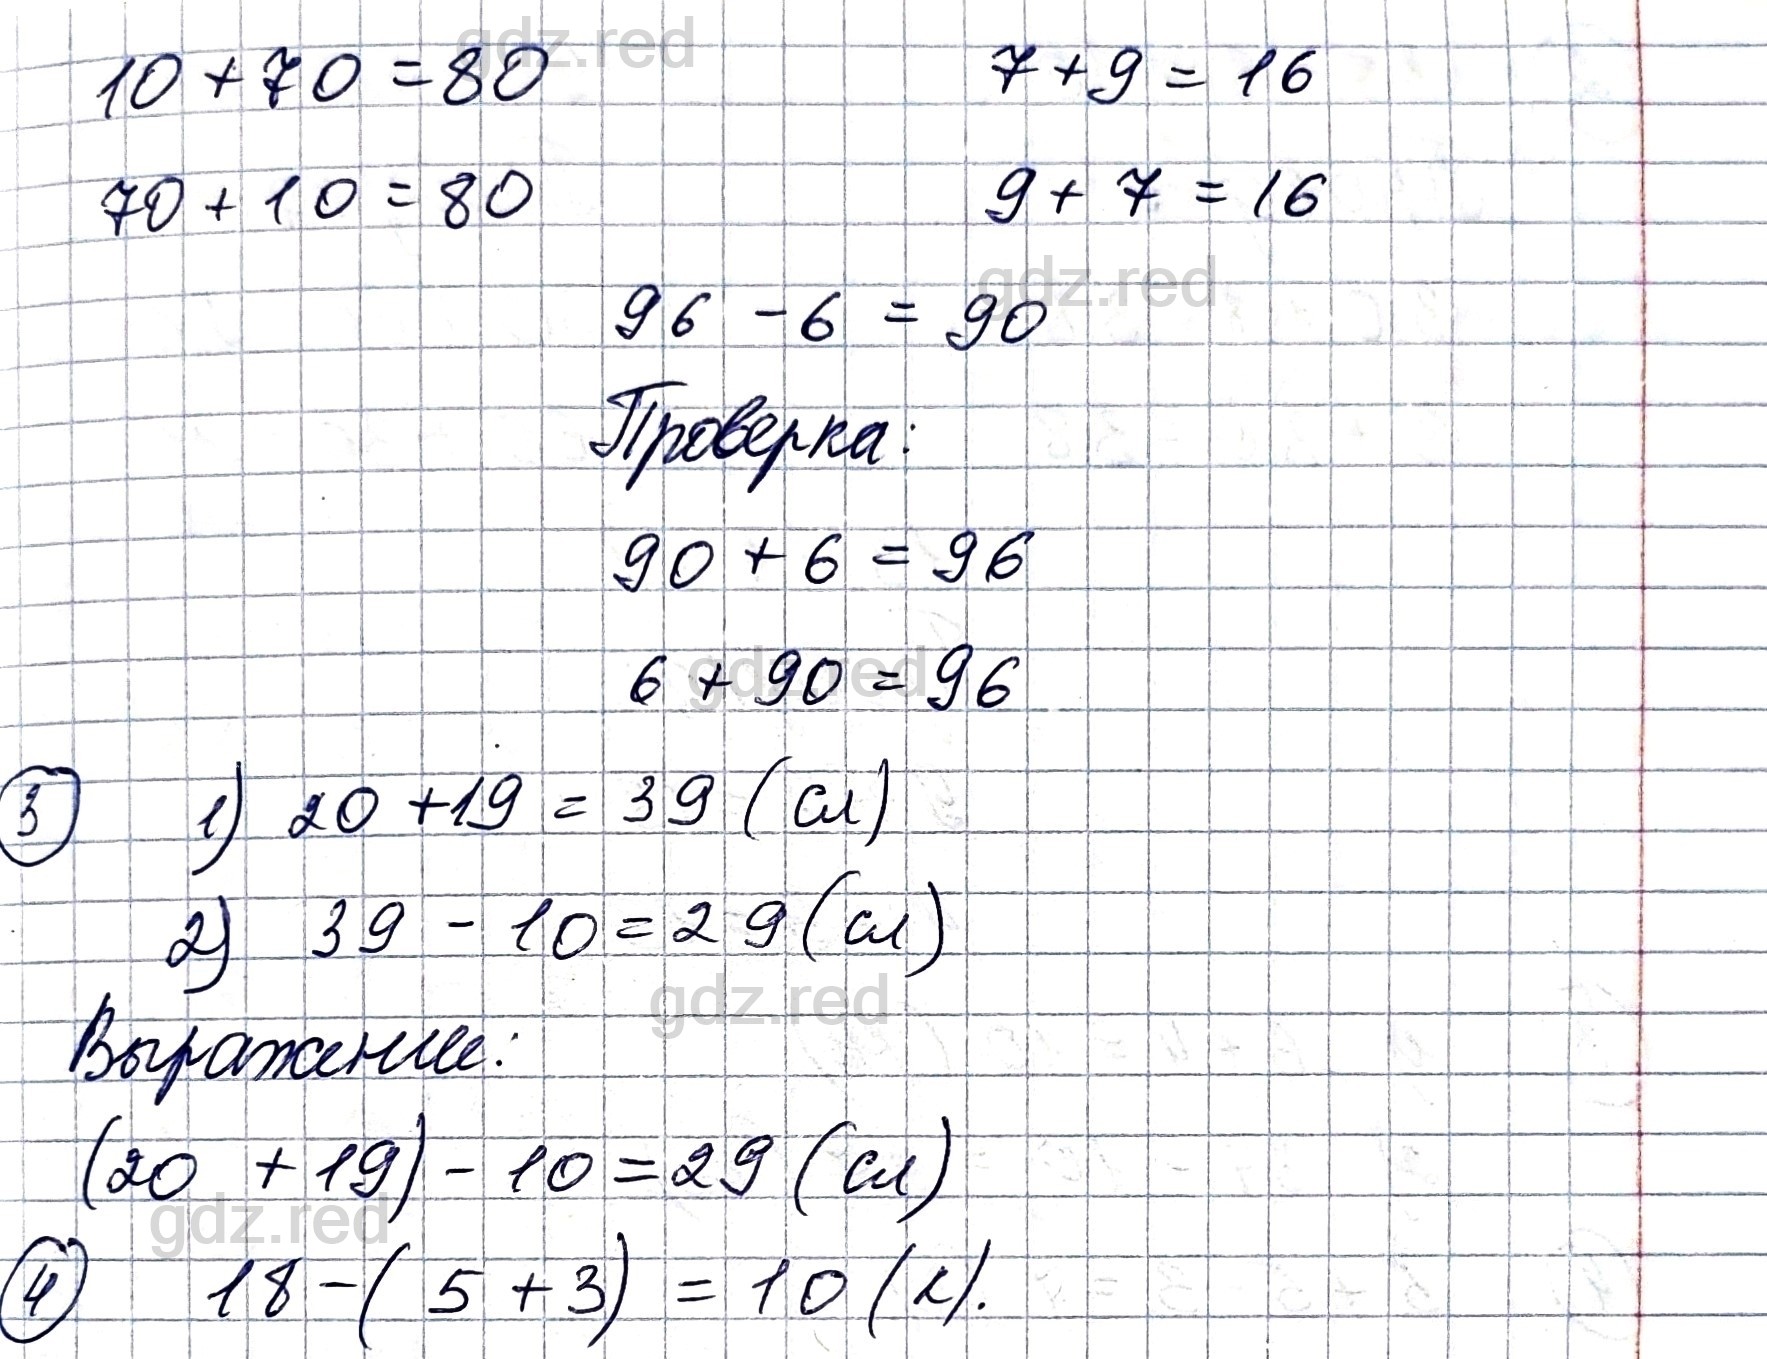 gdz.red
10 + 70 = 80 7 + 9 = 16
70 + 10 = 80 9 + 7 = 16
gdz.red
96 - 6 = 90
Проверка:
90 + 6 = 96
gdz.red
6 + 90 = 96
3 1) 20 + 19 = 39 (сл)
2) 39 - 10 = 29 (сл)
gdz.red
Выражение:
(20 + 19) - 10 = 29 (сл)
gdz.red
4 18 - (5 + 3) = 10 (л).